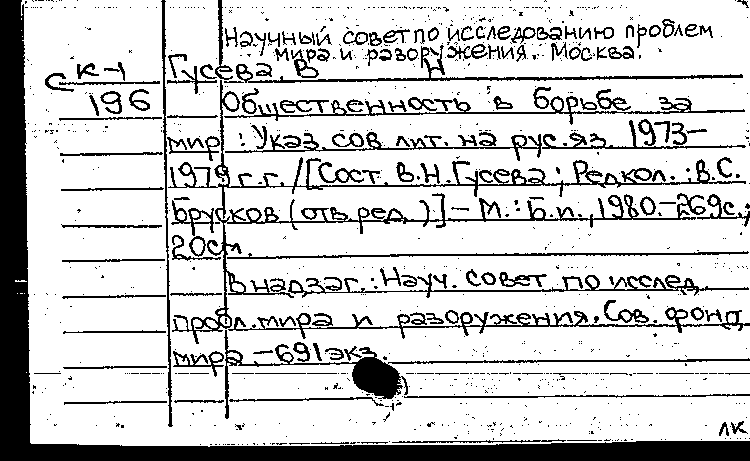 Научный совет по исследованию проблем
мира и разоружения. Москва.
СК-1 Гусева, В Н
196 Общественность в борьбе за
мир : Указ. сов лит. на рус. яз. 1973–
1979 г.г. / [Сост. В.Н. Гусева ; Редкол. : В.С.
Брусков (отв. ред.)] – М. : Б.и., 1980. – 269с.;
20см.
В надзаг. : Науч. совет по исслед.
пробл. мира и разоружения. Сов. фонд
мира. – 691 экз.
ЛК